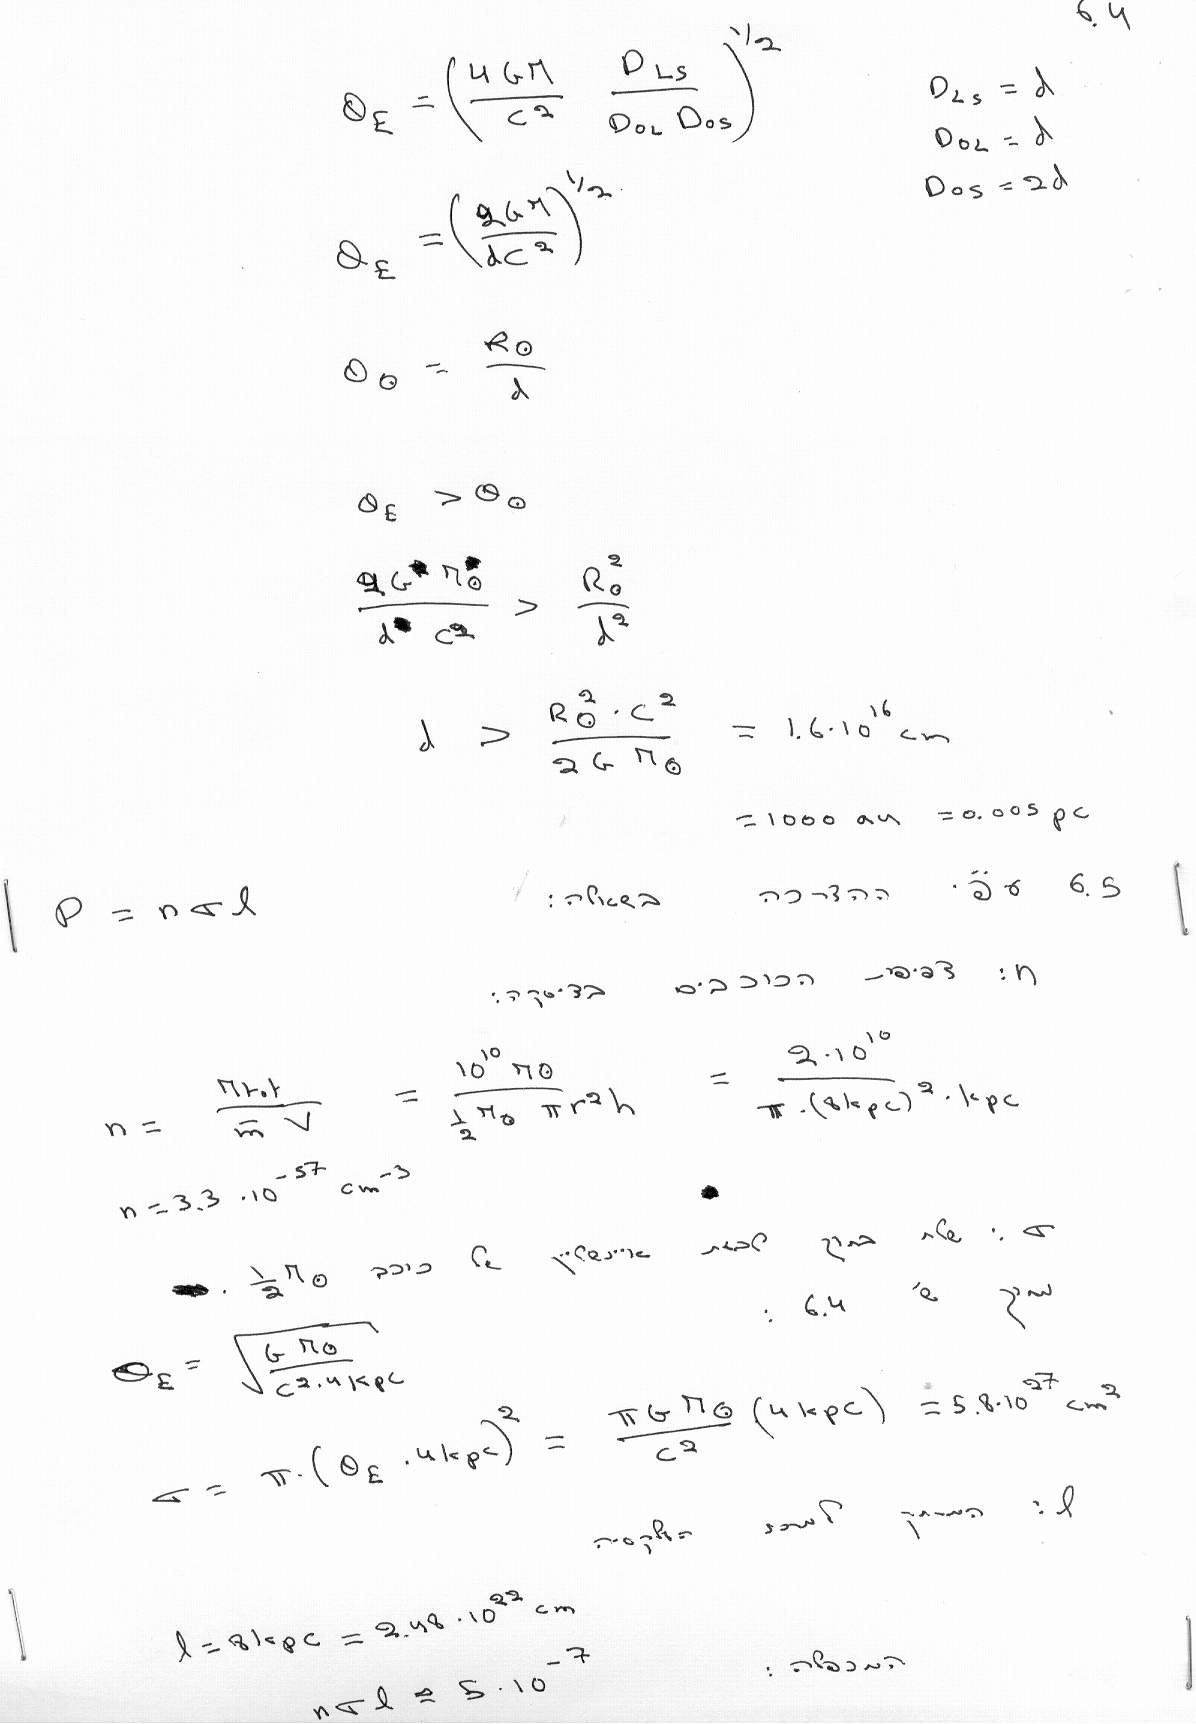 6.4
θ_E = (4GM/c² · D_LS/(D_OL D_OS))^{1/2}
D_LS = d
D_OL = d
D_OS = 2d
θ_E = (2GM/dc²)^{1/2}
θ_⊙ = R_⊙/d
θ_E > θ_⊙
2G M_⊙/(d c²) > R_⊙²/d²
d > R_⊙²·c²/(2GM_⊙) = 1.6·10^{16} cm
= 1000 au = 0.005 pc
6.5 עפ"י ההדרכה בשאלה: P = nσl
n: צפיפות הכוכבים בדיסקה:
n = M_tot/(m̄ V) = 10^{10} M_⊙/(½M_⊙ πr²h) = 2·10^{10}/(π·(8kpc)²·kpc)
n = 3.3·10^{-57} cm^{-3}
σ: שטח בתוך טבעת איינשטיין של כוכב ½M_⊙.
מתוך ש' 6.4:
θ_E = √(GM_⊙/(c²·4kpc))
σ = π·(θ_E·4kpc)² = πGM_⊙/c² (4kpc) = 5.8·10^{27} cm²
l: המרחק למרכז הגלקסיה
l = 8kpc = 2.48·10^{22} cm
המכפלה: nσl = 5·10^{-7}